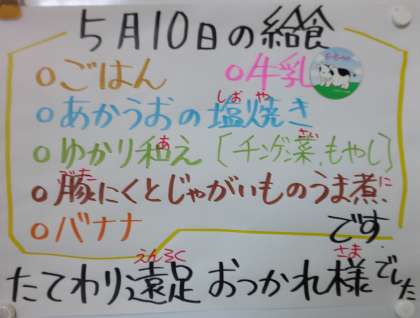 5月10日の給食
○ごはん ○牛乳
○あかうおの塩焼き
○ゆかり和え〔チンゲン菜、もやし〕
○豚にくとじゃがいものうま煮
○バナナ です
たてわり遠足おつかれ様でした